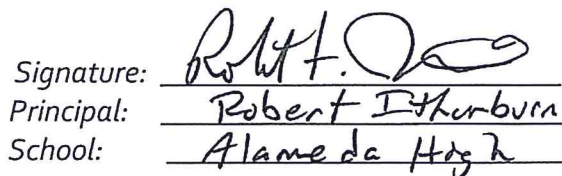 Signature:
Principal: Robert Ithurburn
School: Alameda High